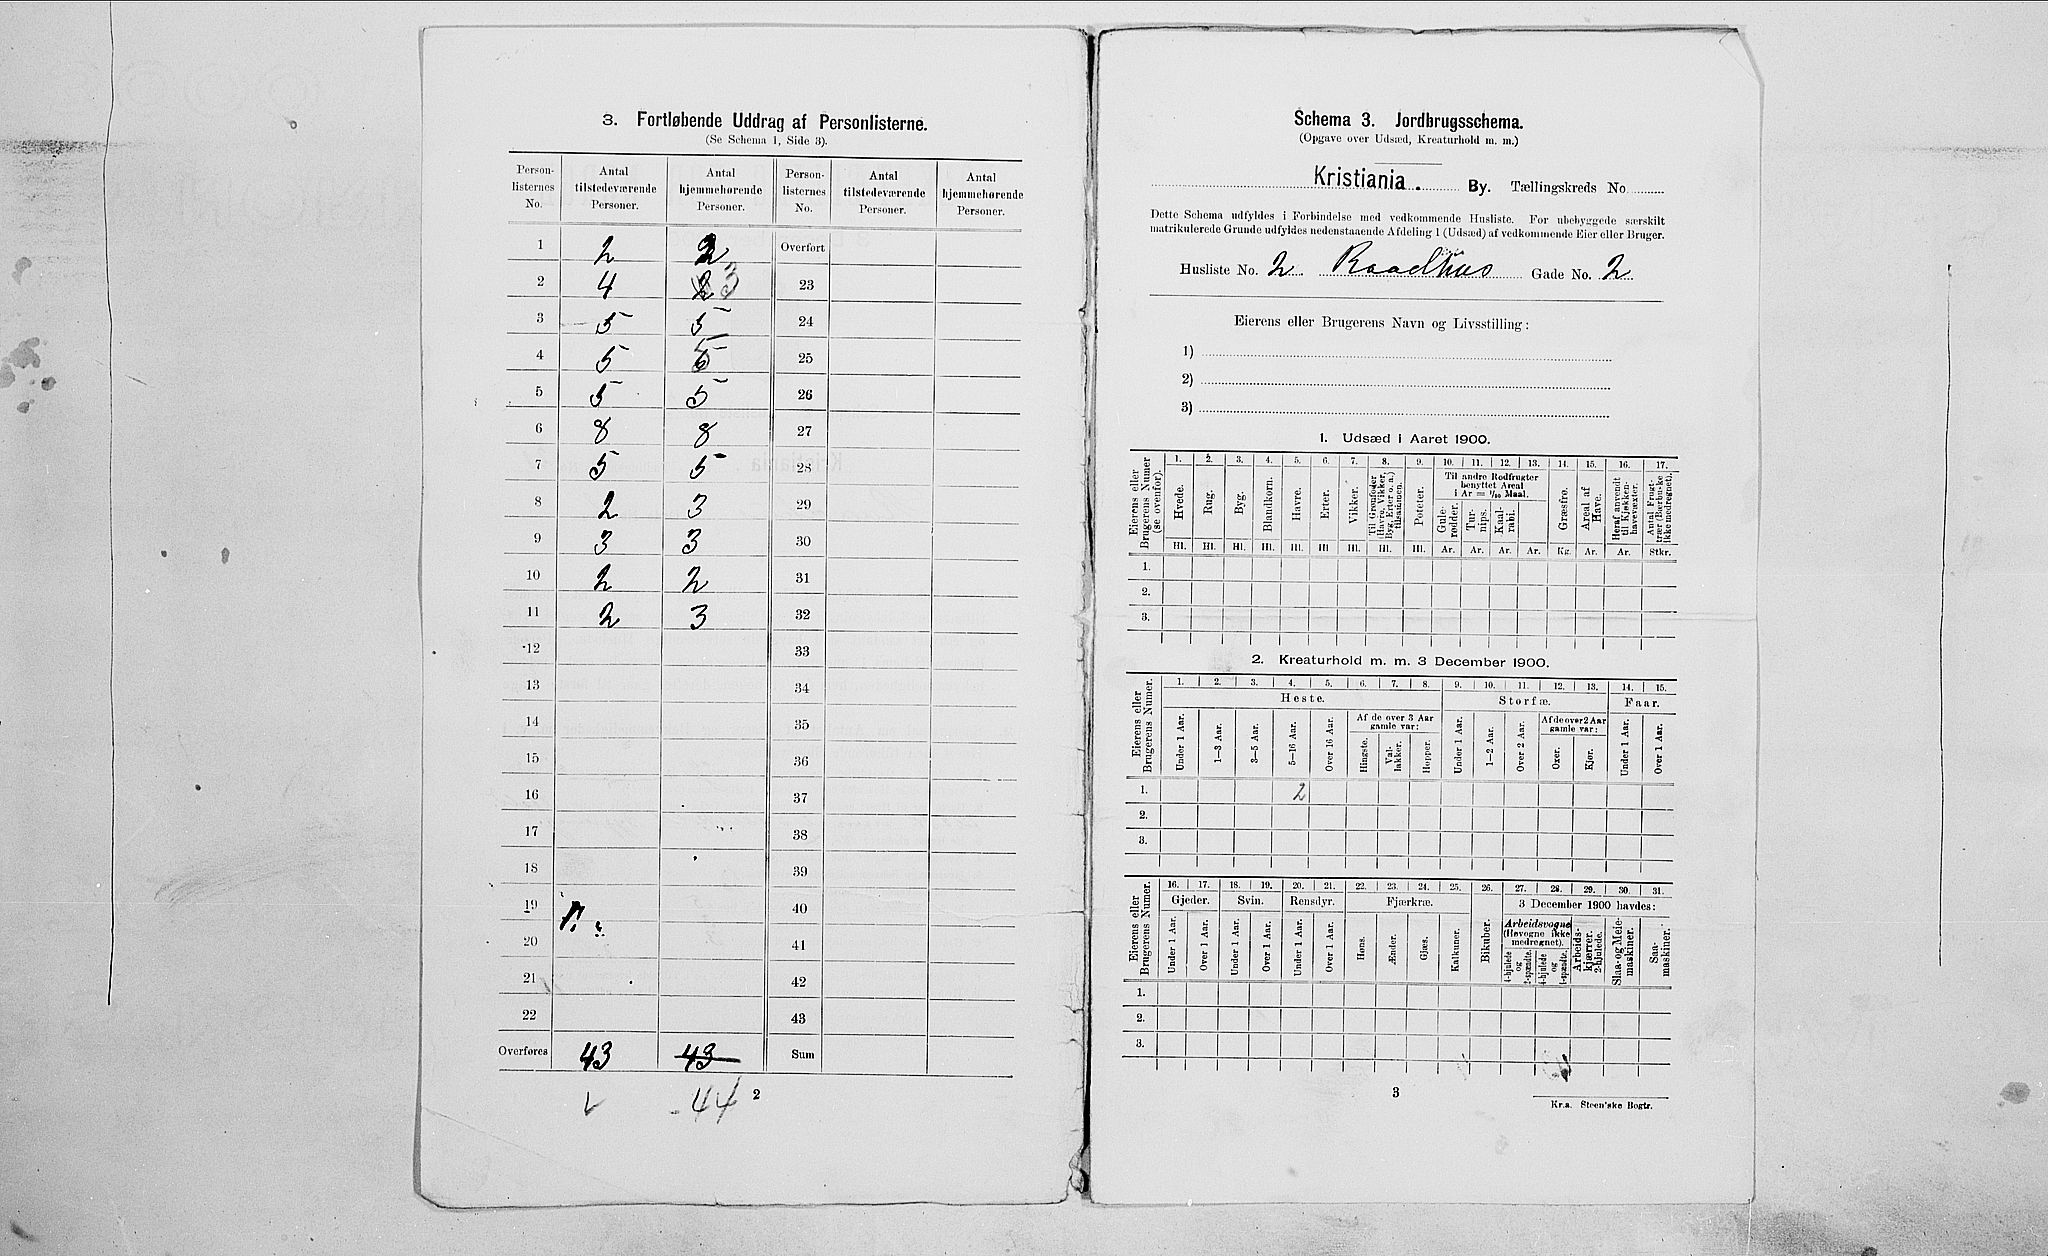 3. Fortløbende Uddrag af Personlisterne.
(Se Schema 1, Side 3).
Person-listernes No. Antal tilstedeværende Personer. Antal hjemmehørende Personer. Person-listernes No. Antal tilstedeværende Personer. Antal hjemmehørende Personer.
1 2 2 Overført
2 4 3 23
3 5 5 24
4 5 5 25
5 5 5 26
6 8 8 27
7 5 5 28
8 2 3 29
9 3 3 30
10 2 2 31
11 2 3 32
12 33
13 34
14 35
15 36
16 37
17 38
18 39
19 40
20 41
21 42
22 43
Overføres 43 43 Sum
44
2
Schema 3. Jordbrugsschema.
(Opgave over Udsæd, Kreaturhold m. m.)
Kristiania. By. Tællingskreds No
Dette Schema udfyldes i Forbindelse med vedkommende Husliste. For ubebyggede særskilt
matrikulerede Grunde udfyldes nedenstaaende Afdeling 1 (Udsæd) af vedkommende Eier eller Bruger.
Husliste No. 2 Raadhus Gade No. 2
Eierens eller Brugerens Navn og Livsstilling:
1)
2)
3)
1. Udsæd i Aaret 1900.
Eierens eller Brugerens Numer (se ovenfor).
1. 2. 3. 4. 5. 6. 7. 8. 9. 10. 11. 12. 13. 14. 15. 16. 17.
Hvede. Rug. Byg. Blandkorn. Havre. Erter. Vikker. Til Grønfoder (Havre, Vikker, Byg, Erter o. a.) tilsaaninen. Poteter.
Til andre Rodfrugter benyttet Areal i Ar = 1/10 Maal.
Gule-rødder. Tur-nips. Kaal-rabi. Græsfrø. Areal af Have. Heraf anvendt til Kjøkken-havevæxter. Antal Frugt-trær (Bærbuske ikke medregnet).
Hl. Hl. Hl. Hl. Hl. Hl. Hl. Hl. Hl. Ar. Ar. Ar. Ar. Kg. Ar. Ar. Stkr.
1.
2.
3.
2. Kreaturhold m. m. 3 December 1900.
Eierens eller Brugerens Numer.
1. 2. 3. 4. 5. 6. 7. 8. 9. 10. 11. 12. 13. 14. 15.
Heste. Storfæ. Faar.
Under 1 Aar. 1—3 Aar. 3—5 Aar. 5—16 Aar. Over 16 Aar.
Af de over 3 Aar gamle var:
Hingste. Val-lakker. Hopper. Under 1 Aar. 1—2 Aar. Over 2 Aar.
Af de over 2 Aar gamle var:
Oxer. Kjør. Under 1 Aar. Over 1 Aar.
1. 2
2.
3.
Eierens eller Brugerens Numer.
16. 17. 18. 19. 20. 21. 22. 23. 24. 25. 26. 27. 28. 29. 30. 31.
Gjeder. Svin. Rensdyr. Fjærkræ. 3 December 1900 havdes:
Under 1 Aar. Over 1 Aar. Under 1 Aar. Over 1 Aar. Under 1 Aar. Over 1 Aar. Høns. Ænder. Gjæs. Kalkuner. Bikuber.
Arbeidsvogne (Høvogne ikke medregnet).
4-hjulede og 2-spændte. 4-hjulede og 1-spændte. Arbeids-kjærrer. 2-hjulede. Slaa- og Meie-maskiner. Saa-maskiner.
1.
2.
3.
3
Kr.a. Steen'ske Bogtr.